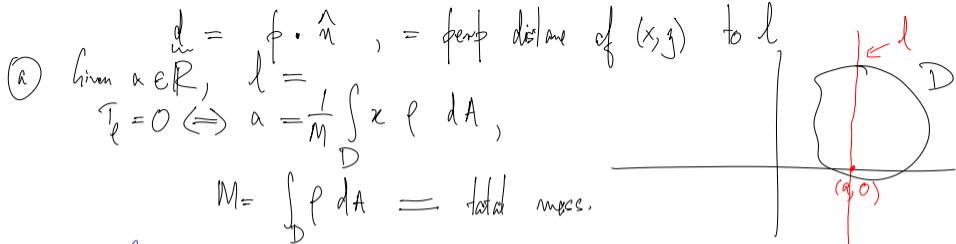 d = p · n̂ , = perp distane of (x,y) to l
ⓐ Given a ∈ ℝ, l =
T_ℓ = 0 ⟺ a = 1/M ∫_D x ρ dA ,
M = ∫_D ρ dA = total mass.
l
D
(a, 0)